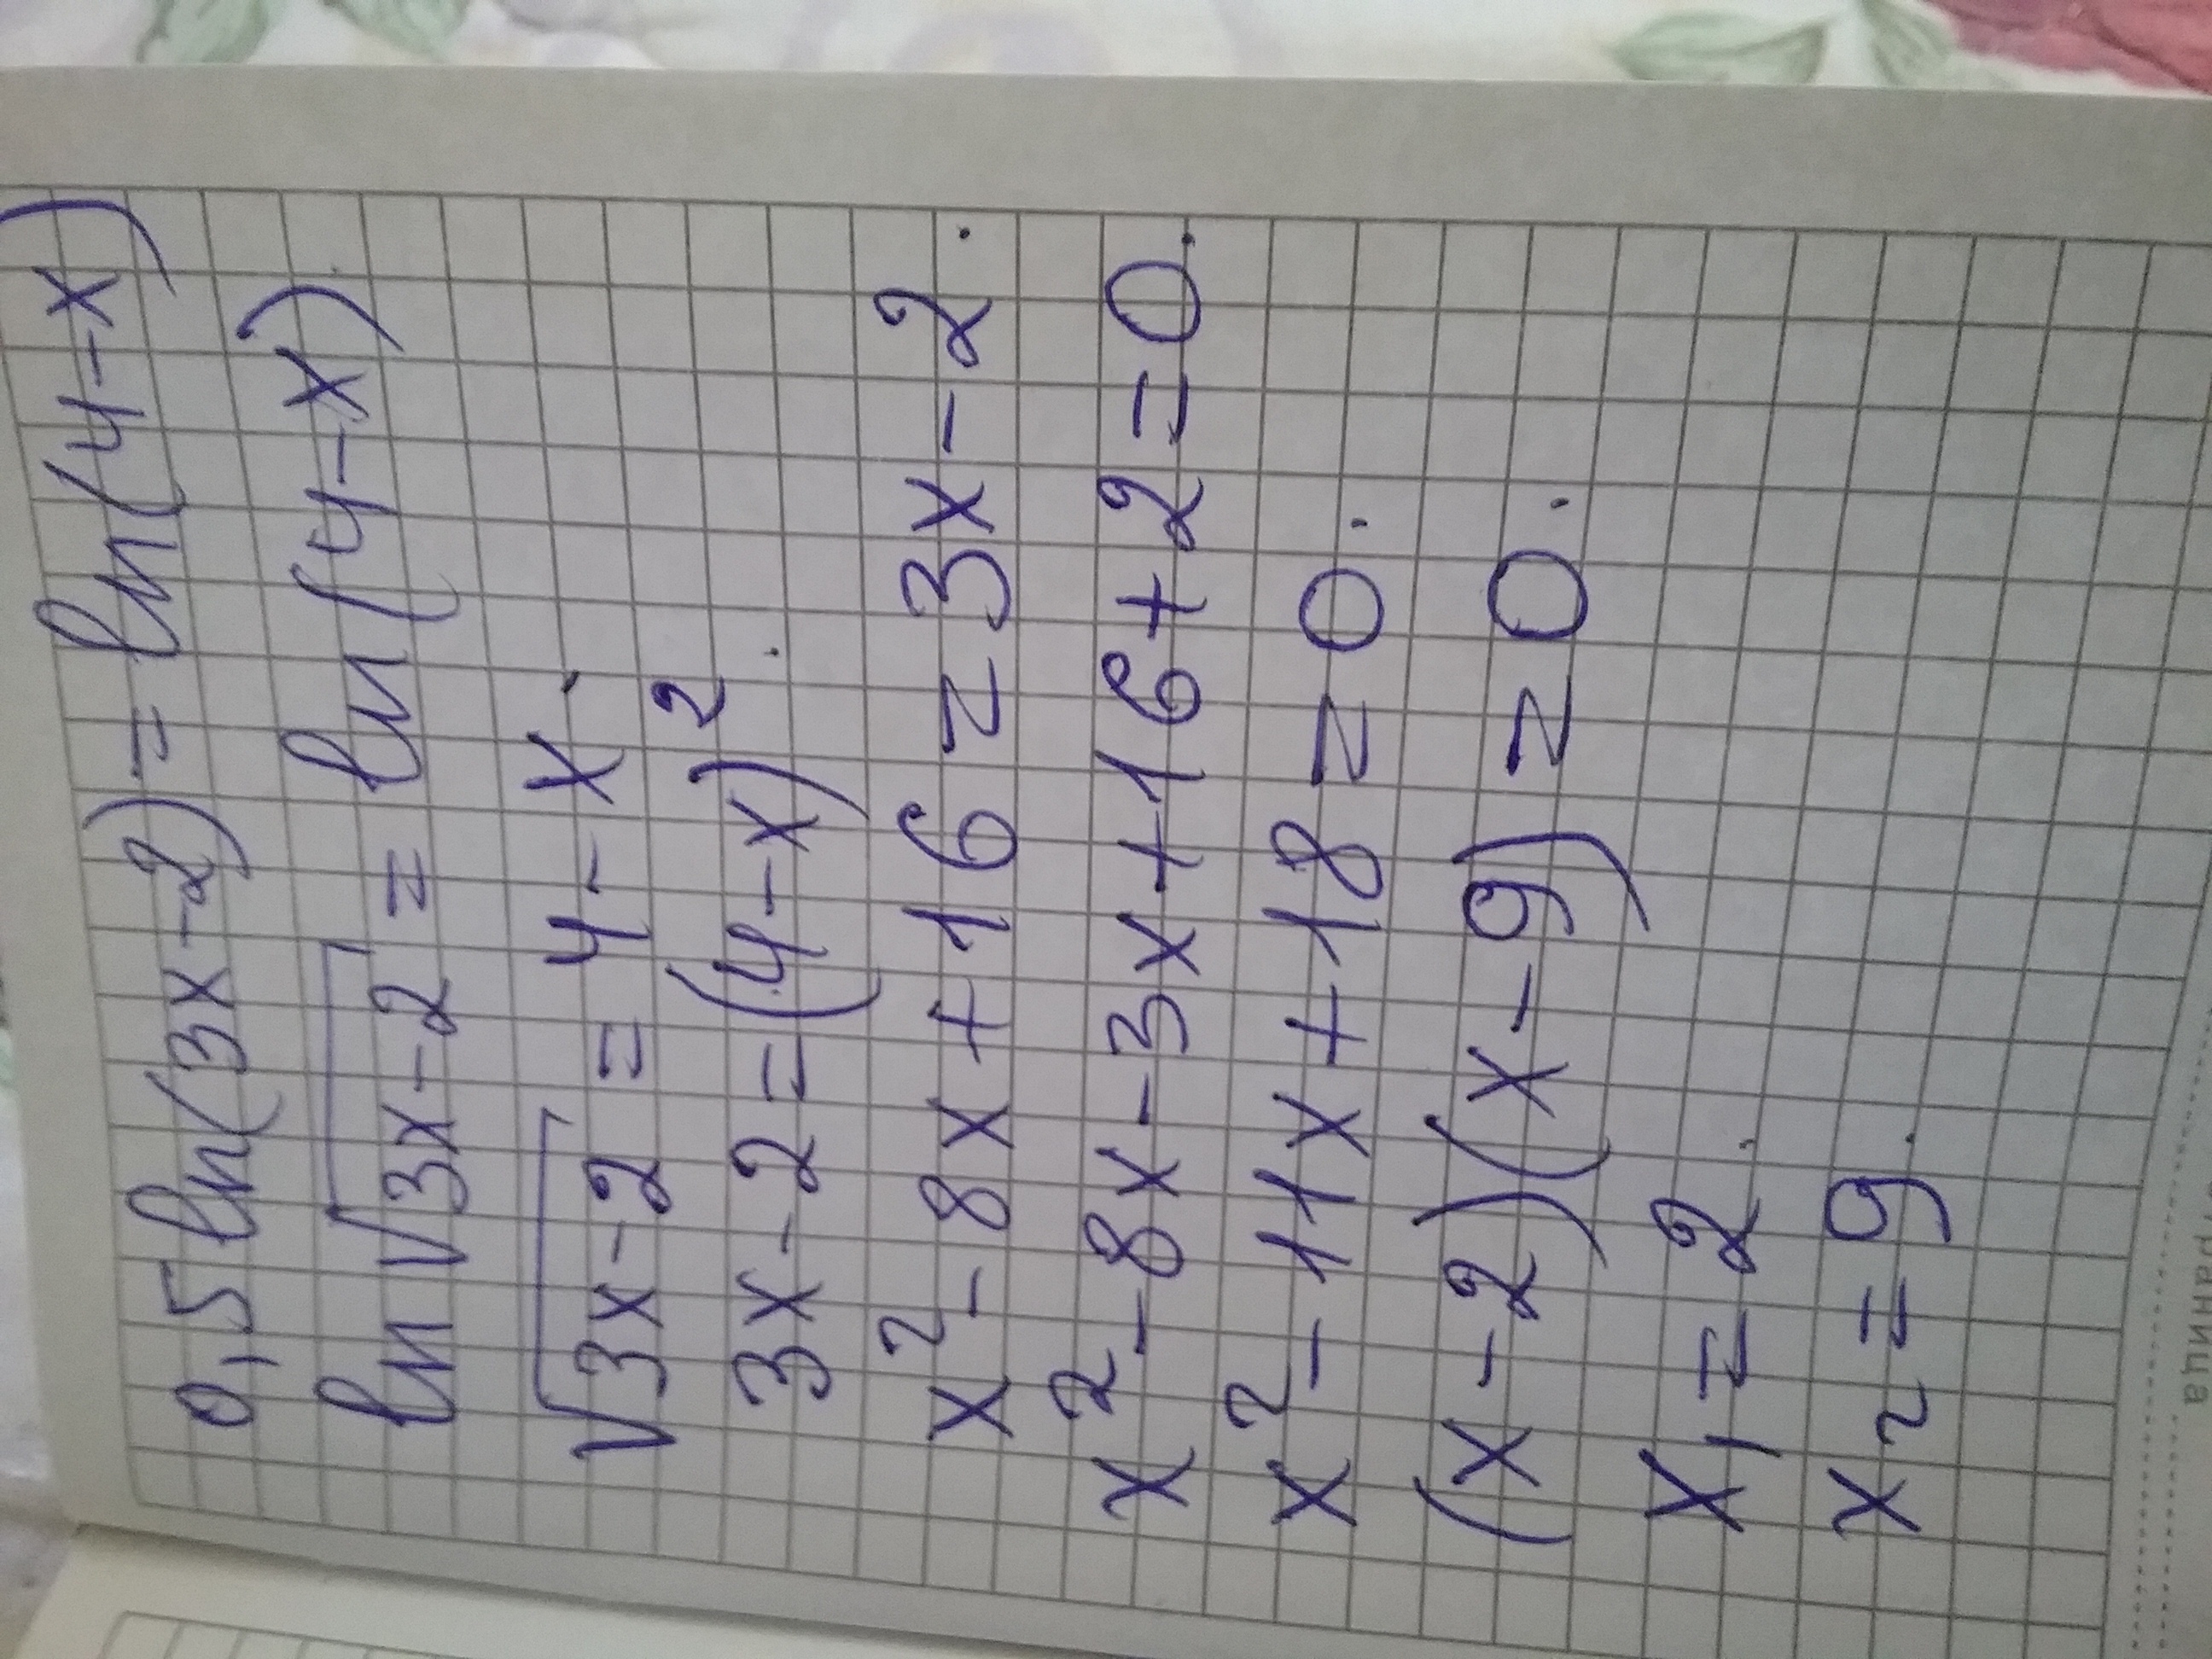 0,5 ln(3x-2) = ln(4-x)
ln √3x-2 = ln(4-x)
√3x-2 = 4-x.
3x-2=(4-x)².
x²-8x+16=3x-2.
x²-8x-3x+16+2=0.
x²-11x+18=0.
(x-2)(x-9)=0.
x₁=2.
x₂=9.